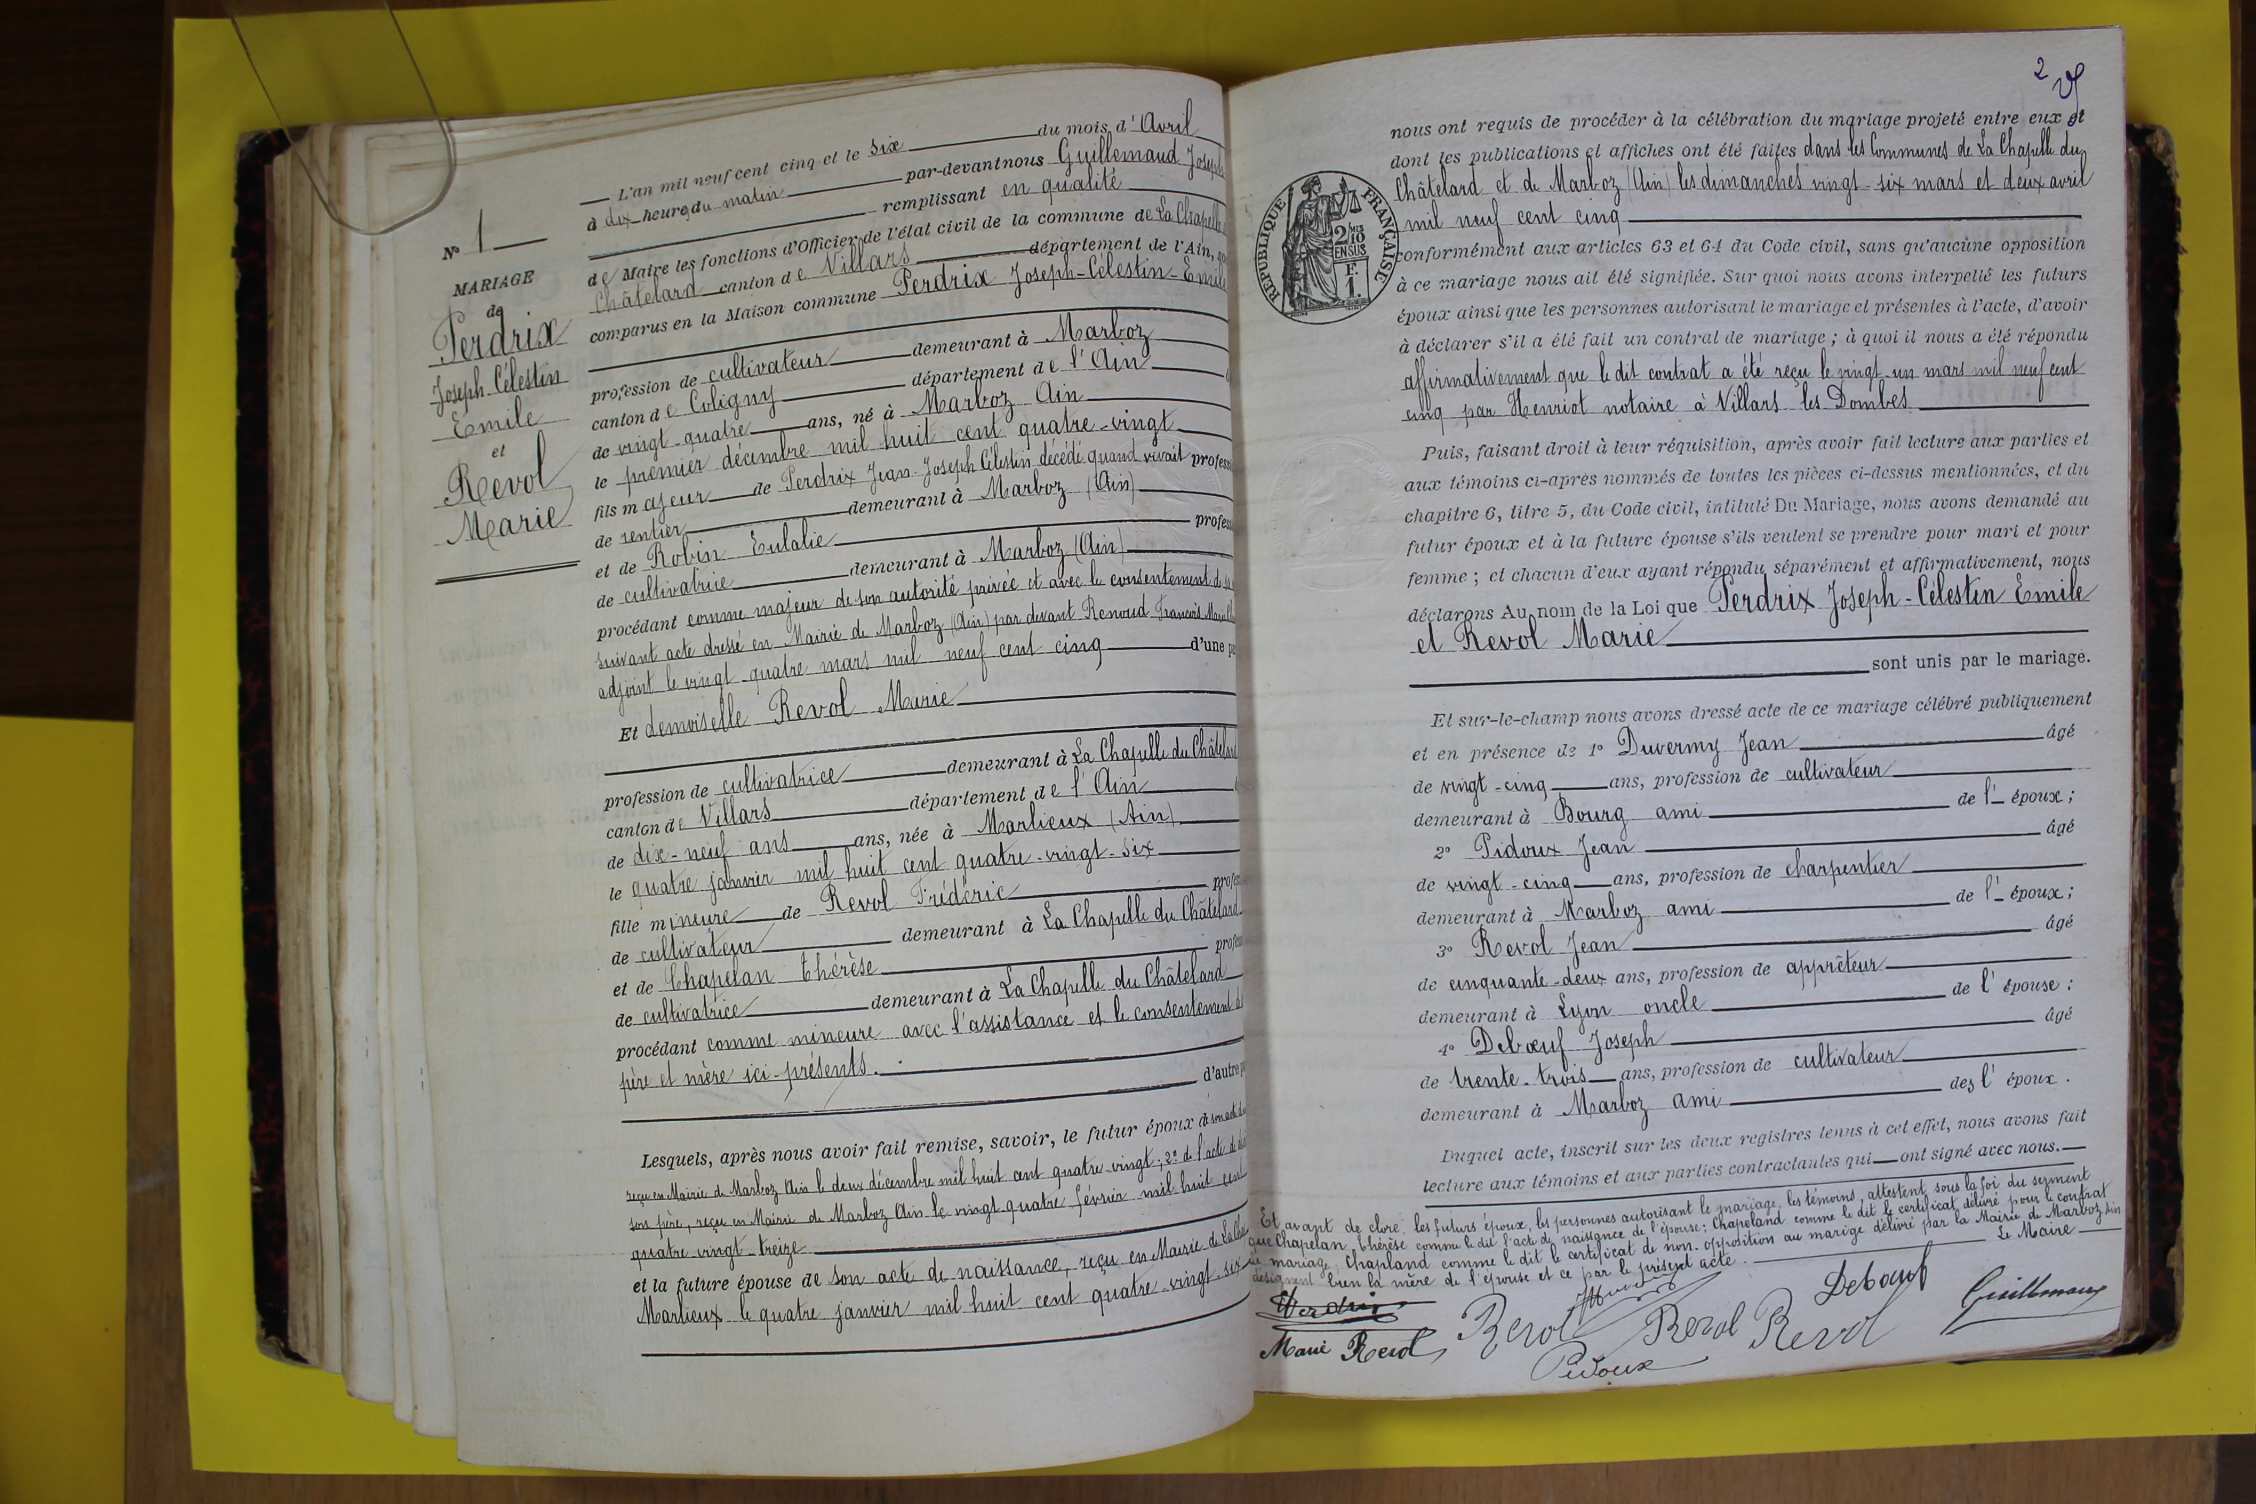 N° 1
MARIAGE
de
Perdrix
Joseph Célestin
Emile
et
Revol
Marie
L'an mil neuf cent cinq et le six du mois d'Avril
à dix heures du matin par-devant nous Guillemaud Joseph
remplissant en qualité
de Maire les fonctions d'Officier de l'état civil de la commune de La Chapelle
Châtelard canton de Villars département de l'Ain,
comparus en la Maison commune Perdrix Joseph-Célestin-Emile
profession de cultivateur demeurant à Marboz
canton de Coligny département de l'Ain
de vingt-quatre ans, né à Marboz Ain
le premier décembre mil huit cent quatre-vingt
fils majeur de Perdrix Jean-Joseph Célestin décédé quand vivait profess
de rentier demeurant à Marboz (Ain)
et de Robin Eulalie profess
de cultivatrice demeurant à Marboz (Ain)
procédant comme majeur de son autorité privée et avec le consentement de
suivant acte dressé en Mairie de Marboz (Ain) par devant Renoud François
adjoint le vingt-quatre mars mil neuf cent cinq d'une pa
Et demoiselle Revol Marie
profession de cultivatrice demeurant à La Chapelle du Châtelard
canton de Villars département de l'Ain
de dix-neuf ans ans, née à Marlieux (Ain)
le quatre janvier mil huit cent quatre-vingt-six
fille mineure de Revol Frédéric profes
de cultivateur demeurant à La Chapelle du Châtelard
et de Chapelan Thérèse profes
de cultivatrice demeurant à La Chapelle du Châtelard
procédant comme mineure avec l'assistance et le consentement de
père et mère ici présents.
d'autre pa
Lesquels, après nous avoir fait remise, savoir, le futur époux de son acte de
reçu en Mairie de Marboz Ain le deux décembre mil huit cent quatre vingt; 2° de l'acte de
son père, reçu en Mairie de Marboz Ain le vingt-quatre février mil huit cent
quatre vingt-treize
et la future épouse de son acte de naissance, reçu en Mairie de
Marlieux le quatre janvier mil huit cent quatre-vingt-six
2
nous ont requis de procéder à la célébration du mariage projeté entre eux et
dont les publications et affiches ont été faites dans les Communes de La Chapelle du
Châtelard et de Marboz (Ain) les dimanches vingt-six mars et deux avril
mil neuf cent cinq
RÉPUBLIQUE FRANÇAISE
2/10 EN SUS
F.
1.
conformément aux articles 63 et 64 du Code civil, sans qu'aucune opposition
à ce mariage nous ait été signifiée. Sur quoi nous avons interpellé les futurs
époux ainsi que les personnes autorisant le mariage et présentes à l'acte, d'avoir
à déclarer s'il a été fait un contrat de mariage; à quoi il nous a été répondu
affirmativement que le dit contrat a été reçu le vingt-un mars mil neuf cent
cinq par Henriot notaire à Villars les Dombes
Puis, faisant droit à leur réquisition, après avoir fait lecture aux parties et
aux témoins ci-après nommés de toutes les pièces ci-dessus mentionnées, et du
chapitre 6, titre 5, du Code civil, intitulé Du Mariage, nous avons demandé au
futur époux et à la future épouse s'ils veulent se prendre pour mari et pour
femme; et chacun d'eux ayant répondu séparément et affirmativement, nous
déclarons Au nom de la Loi que Perdrix Joseph-Célestin Emile
et Revol Marie
sont unis par le mariage.
Et sur-le-champ nous avons dressé acte de ce mariage célébré publiquement
et en présence de 1° Duvermy Jean âgé
de vingt-cinq ans, profession de cultivateur
demeurant à Bourg ami de l' époux;
2° Pidoux Jean âgé
de vingt-cinq ans, profession de charpentier
demeurant à Marboz ami de l' époux;
3° Revol Jean âgé
de cinquante-deux ans, profession de apprêteur
demeurant à Lyon oncle de l' épouse;
4° Debœuf Joseph âgé
de trente-trois ans, profession de cultivateur
demeurant à Marboz ami de l' époux.
Duquel acte, inscrit sur les deux registres tenus à cet effet, nous avons fait
lecture aux témoins et aux parties contractantes qui ont signé avec nous.
Et avant de clore, les futurs époux, les personnes autorisant le mariage, les témoins, attestent sous la foi du serment
que Chapelan Thérèse comme le dit l'acte de naissance de l'épouse; Chapeland comme le dit le certificat délivré pour le contrat
de mariage; Chapland comme le dit le certificat de non-opposition au mariage délivré par la Mairie de Marboz Ain
désignent bien la mère de l'épouse et ce par le présent acte.
Le Maire
Perdrix
Marie Revol
Revol
Pidoux
Revol
Revol
Debœuf
Guillemaud